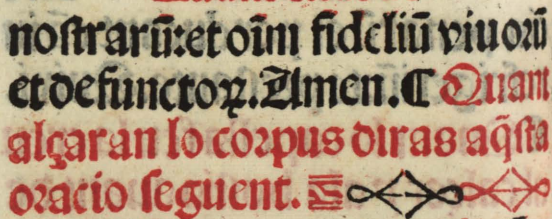 noſtrarū:et oīm fideliū viuorū
et defunctoꝝ. Amen. ¶ Quant
alçaran lo corpus diras aq̄ſta
oracio ſeguent.